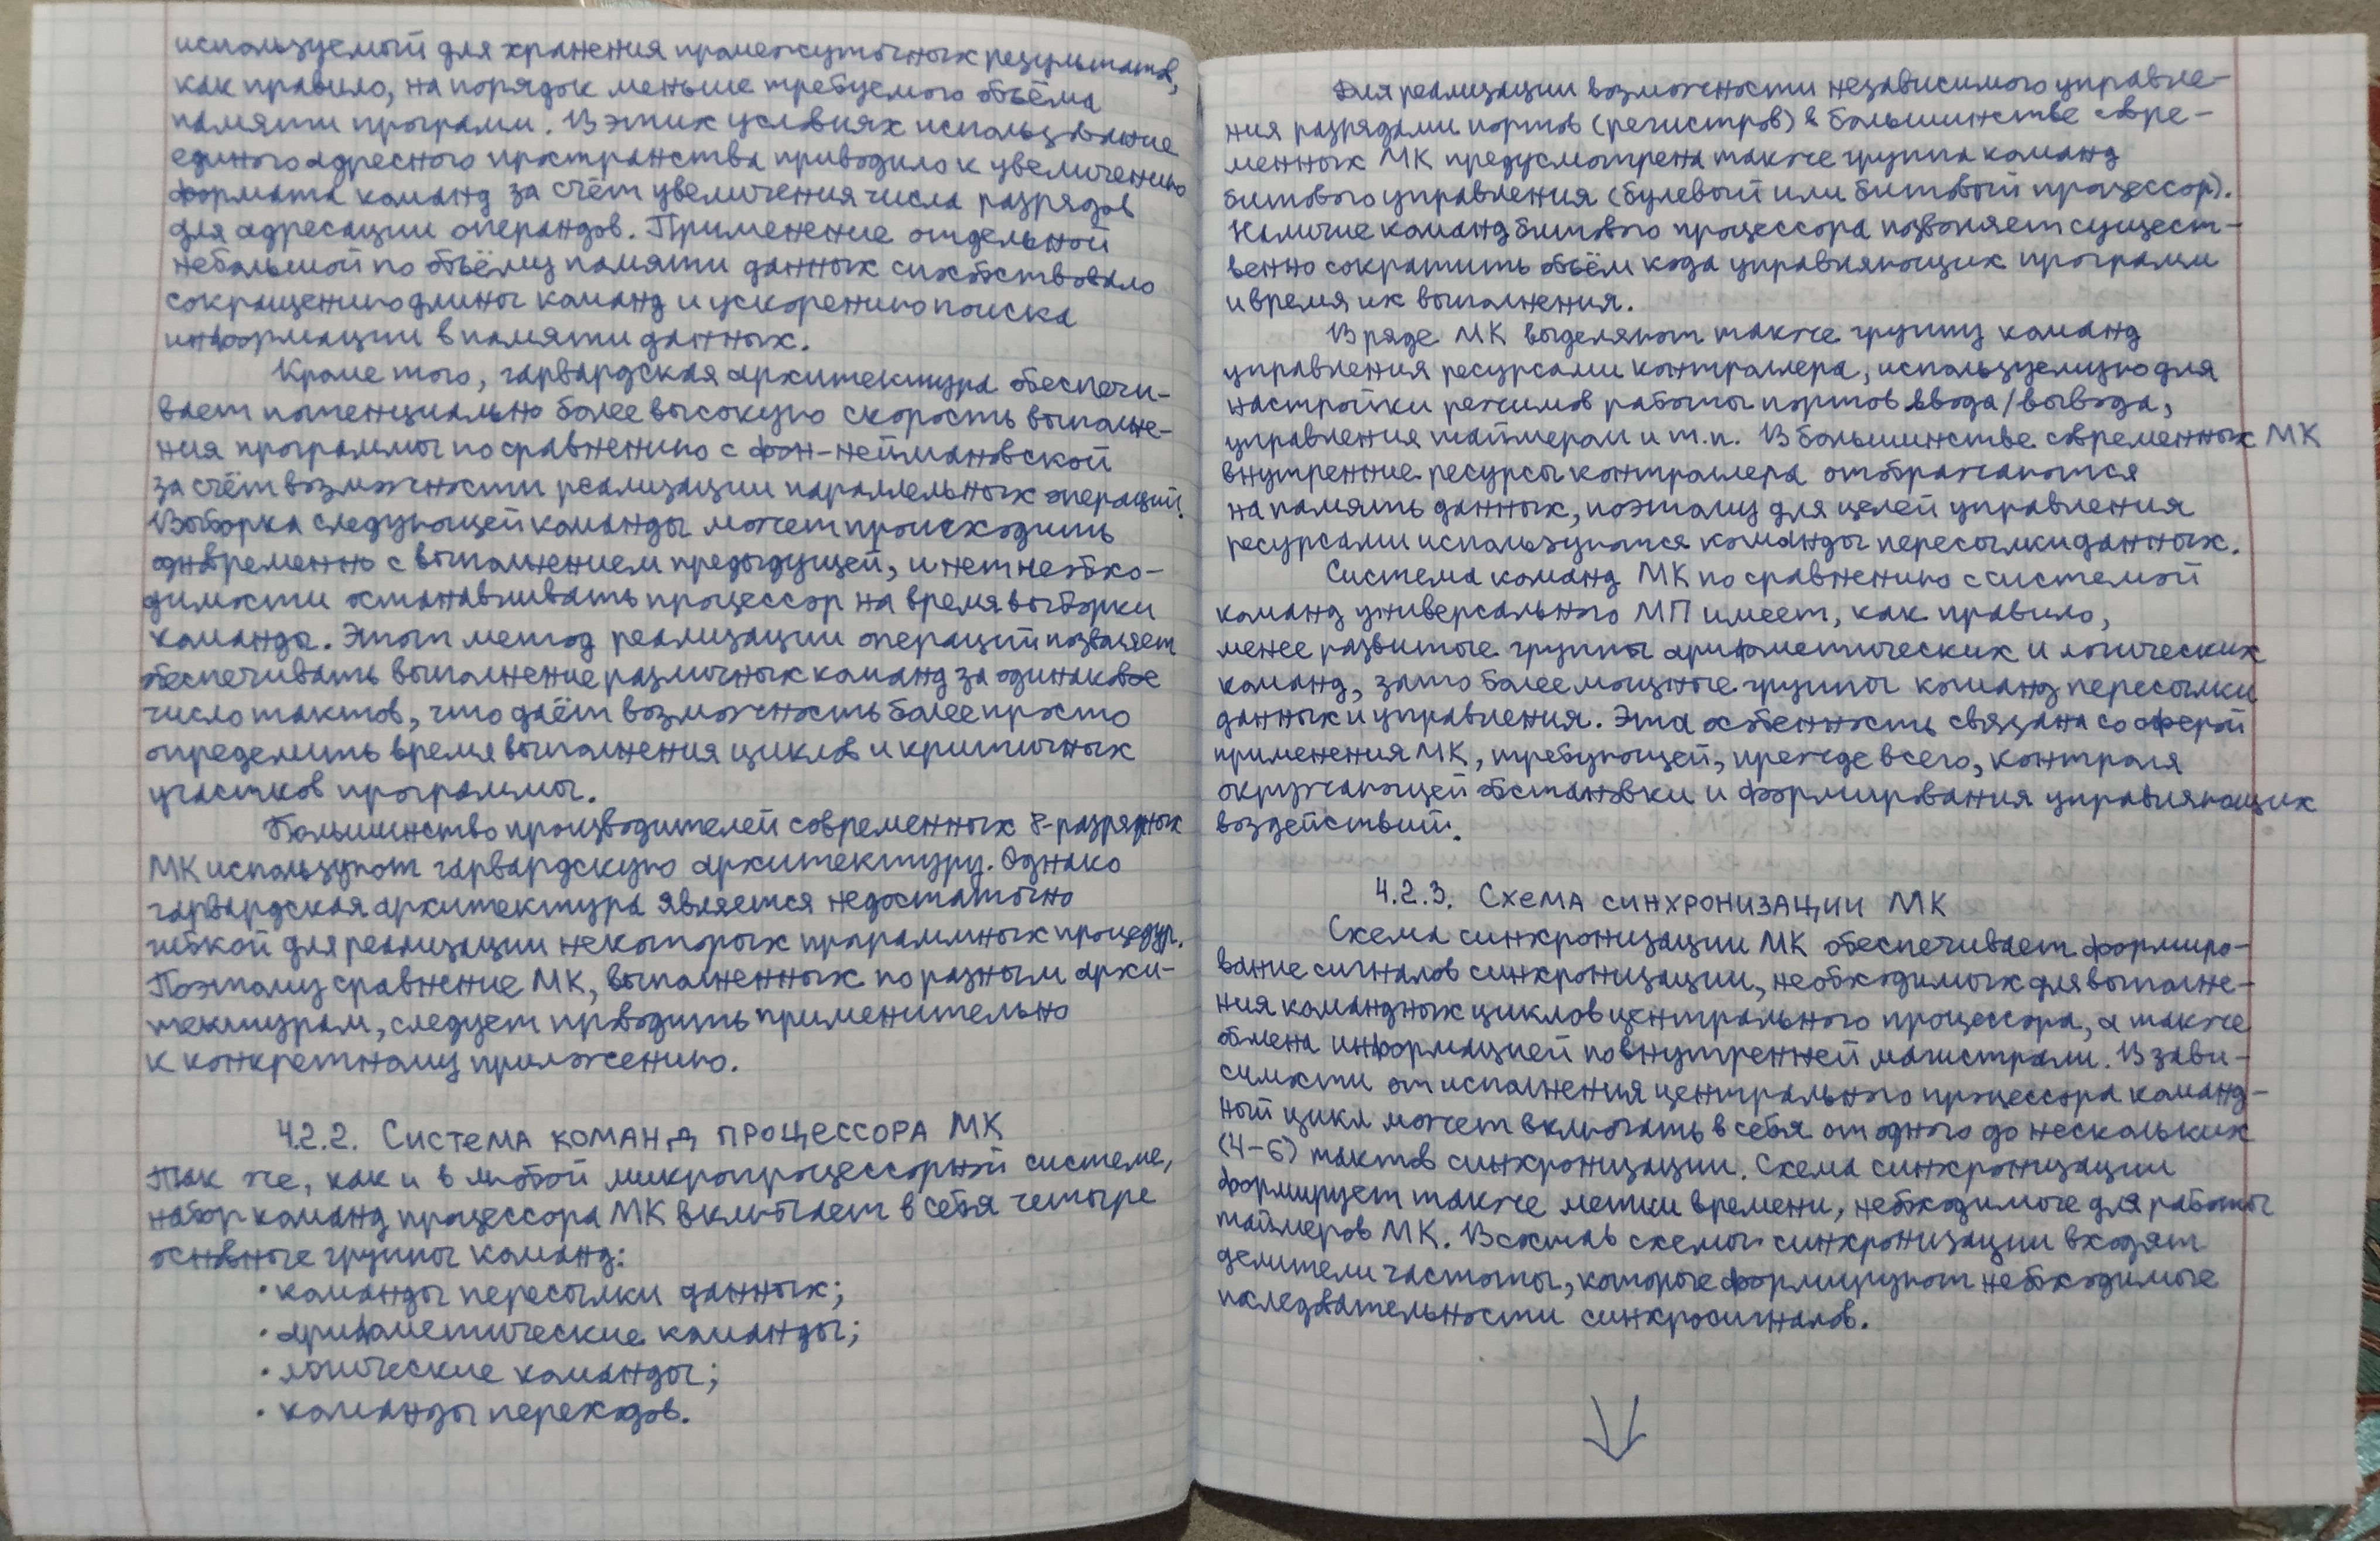 используемый для хранения промежуточных результатов,
как правило, на порядок меньше требуемого объёма
памяти программ. В этих условиях использование
единого адресного пространства приводило к увеличению
формата команд за счёт увеличения числа разрядов
для адресации операндов. Применение отдельной
небольшой по объёму памяти данных способствовало
сокращению длины команд и ускорению поиска
информации в памяти данных.
Кроме того, гарвардская архитектура обеспечи-
вает потенциально более высокую скорость выполне-
ния программы по сравнению с фон-неймановской
за счёт возможности реализации параллельных операций.
Выборка следующей команды может происходить
одновременно с выполнением предыдущей, и нет необхо-
димости останавливать процессор на время выборки
команды. Этот метод реализации операций позволяет
обеспечивать выполнение различных команд за одинаковое
число тактов, что даёт возможность более просто
определить время выполнения циклов и критичных
участков программы.
Большинство производителей современных 8-разрядных
МК используют гарвардскую архитектуру. Однако
гарвардская архитектура является недостаточно
гибкой для реализации некоторых программных процедур.
Поэтому сравнение МК, выполненных по разным архи-
тектурам, следует проводить применительно
к конкретному приложению.
4.2.2. Система команд процессора МК
Так же, как и в любой микропроцессорной системе,
набор команд процессора МК включает в себя четыре
основные группы команд:
· команды пересылки данных;
· арифметические команды;
· логические команды;
· команды переходов.
Для реализации возможности независимого управле-
ния разрядами портов (регистров) в большинстве совре-
менных МК предусмотрена также группа команд
битового управления (булевый или битовый процессор).
Наличие команд битового процессора позволяет сущест-
венно сократить объём кода управляющих программ
и время их выполнения.
В ряде МК выделяют также группу команд
управления ресурсами контроллера, используемую для
настройки режимов работы портов ввода/вывода,
управления таймером и т.п. В большинстве современных МК
внутренние ресурсы контроллера отображаются
на память данных, поэтому для целей управления
ресурсами используются команды пересылки данных.
Система команд МК по сравнению с системой
команд универсального МП имеет, как правило,
менее развитые группы арифметических и логических
команд, зато более мощные группы команд пересылки
данных и управления. Эта особенность связана со сферой
применения МК, требующей, прежде всего, контроля
окружающей обстановки и формирования управляющих
воздействий.
4.2.3. Схема синхронизации МК
Схема синхронизации МК обеспечивает формиро-
вание сигналов синхронизации, необходимых для выполне-
ния командных циклов центрального процессора, а также
обмена информацией по внутренней магистрали. В зави-
симости от исполнения центрального процессора команд-
ный цикл может включать в себя от одного до нескольких
(4-6) тактов синхронизации. Схема синхронизации
формирует также метки времени, необходимые для работы
таймеров МК. В состав схемы синхронизации входят
делители частоты, которые формируют необходимые
последовательности синхросигналов.